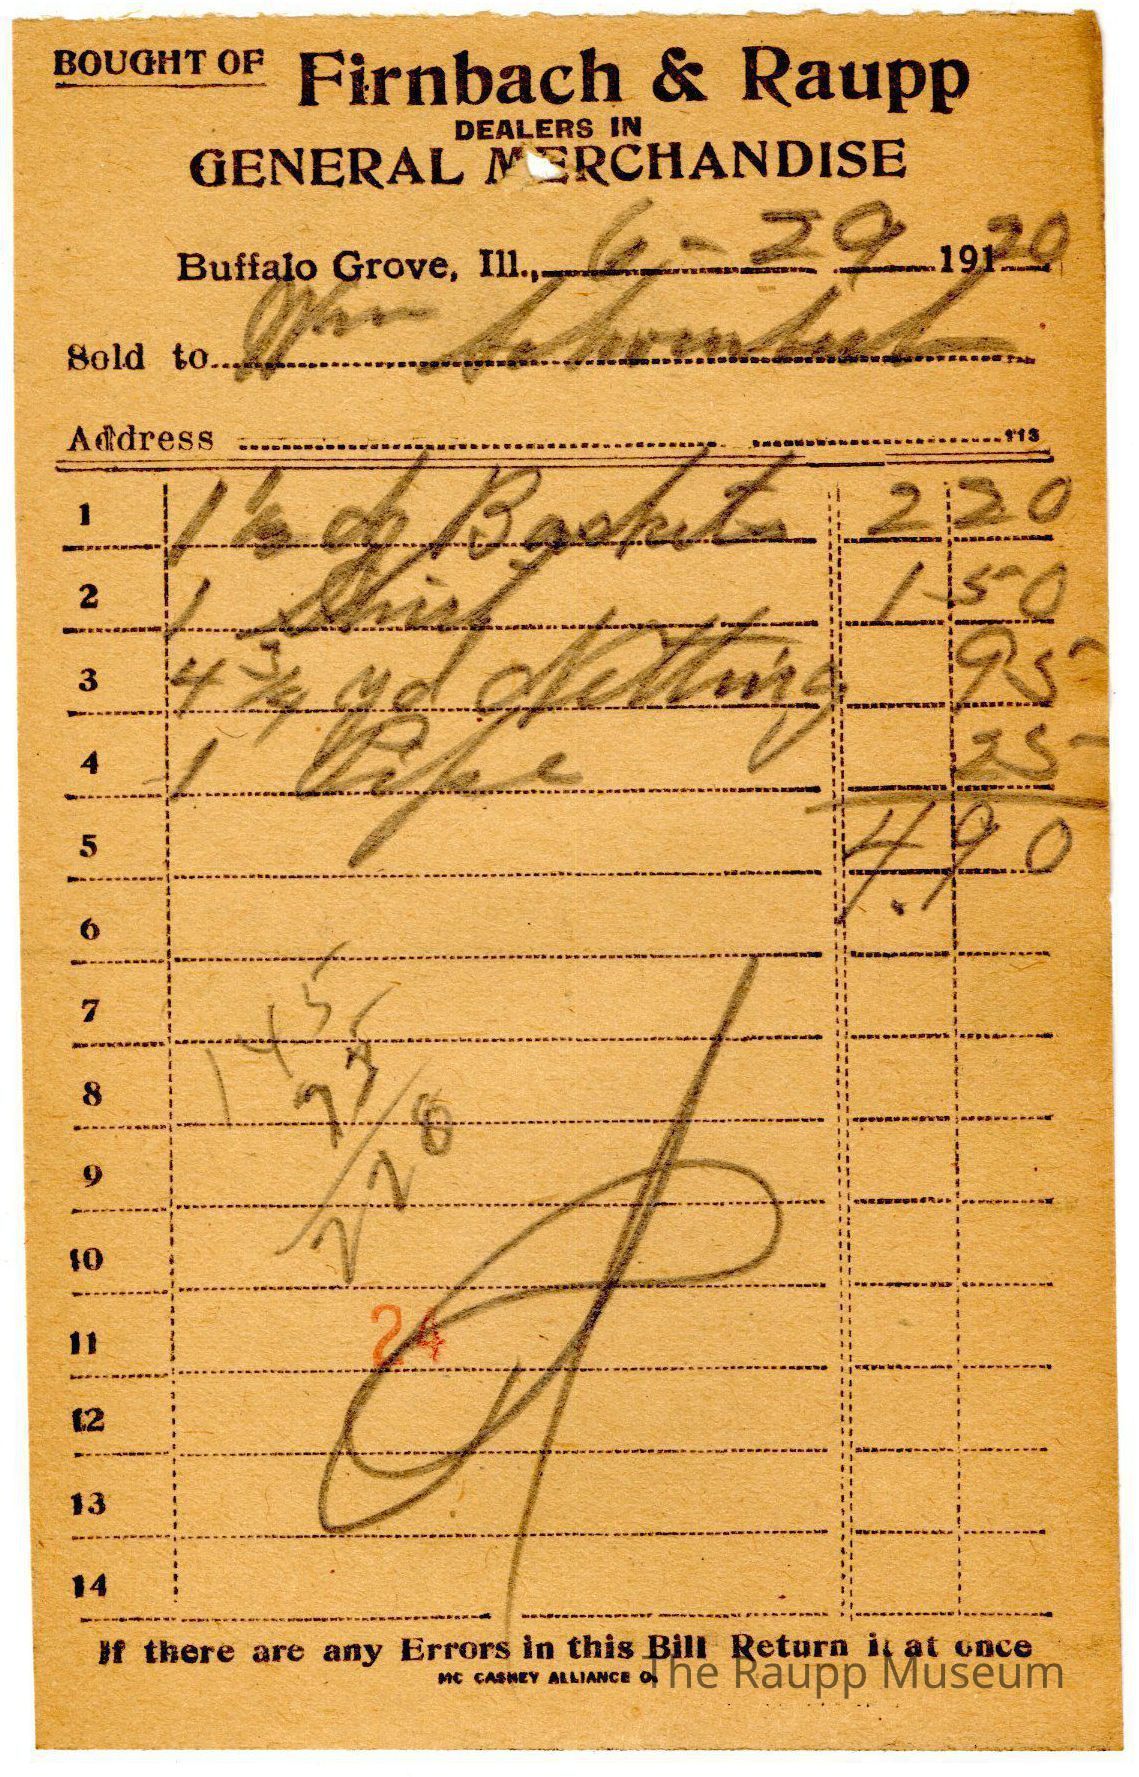 BOUGHT OF Firnbach & Raupp
DEALERS IN
GENERAL MERCHANDISE
Buffalo Grove, Ill., 6-29 191 20
Sold to Wm
Address 113
1 1 1/2 dz Baskets 2 20
2 1 Shirt 1 50
3 4 3/4 yd Netting 95
4 1 Pipe 25
5 4.90
6
7 145
8 95
9 / 228
10
11 24
12
13
14
If there are any Errors in this Bill Return it at once
MC CASKEY ALLIANCE O.
The Raupp Museum